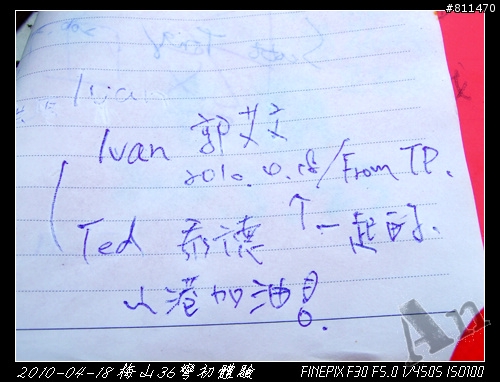 #811470
Ivan
Ivan 郭艾文
2010.4.18/From TP.
Ted 泰德 ↑一起的.
小港加油!
An
2010-04-18梅山36彎初體驗
FINEPIX F30 F5.0 1/450S ISO100